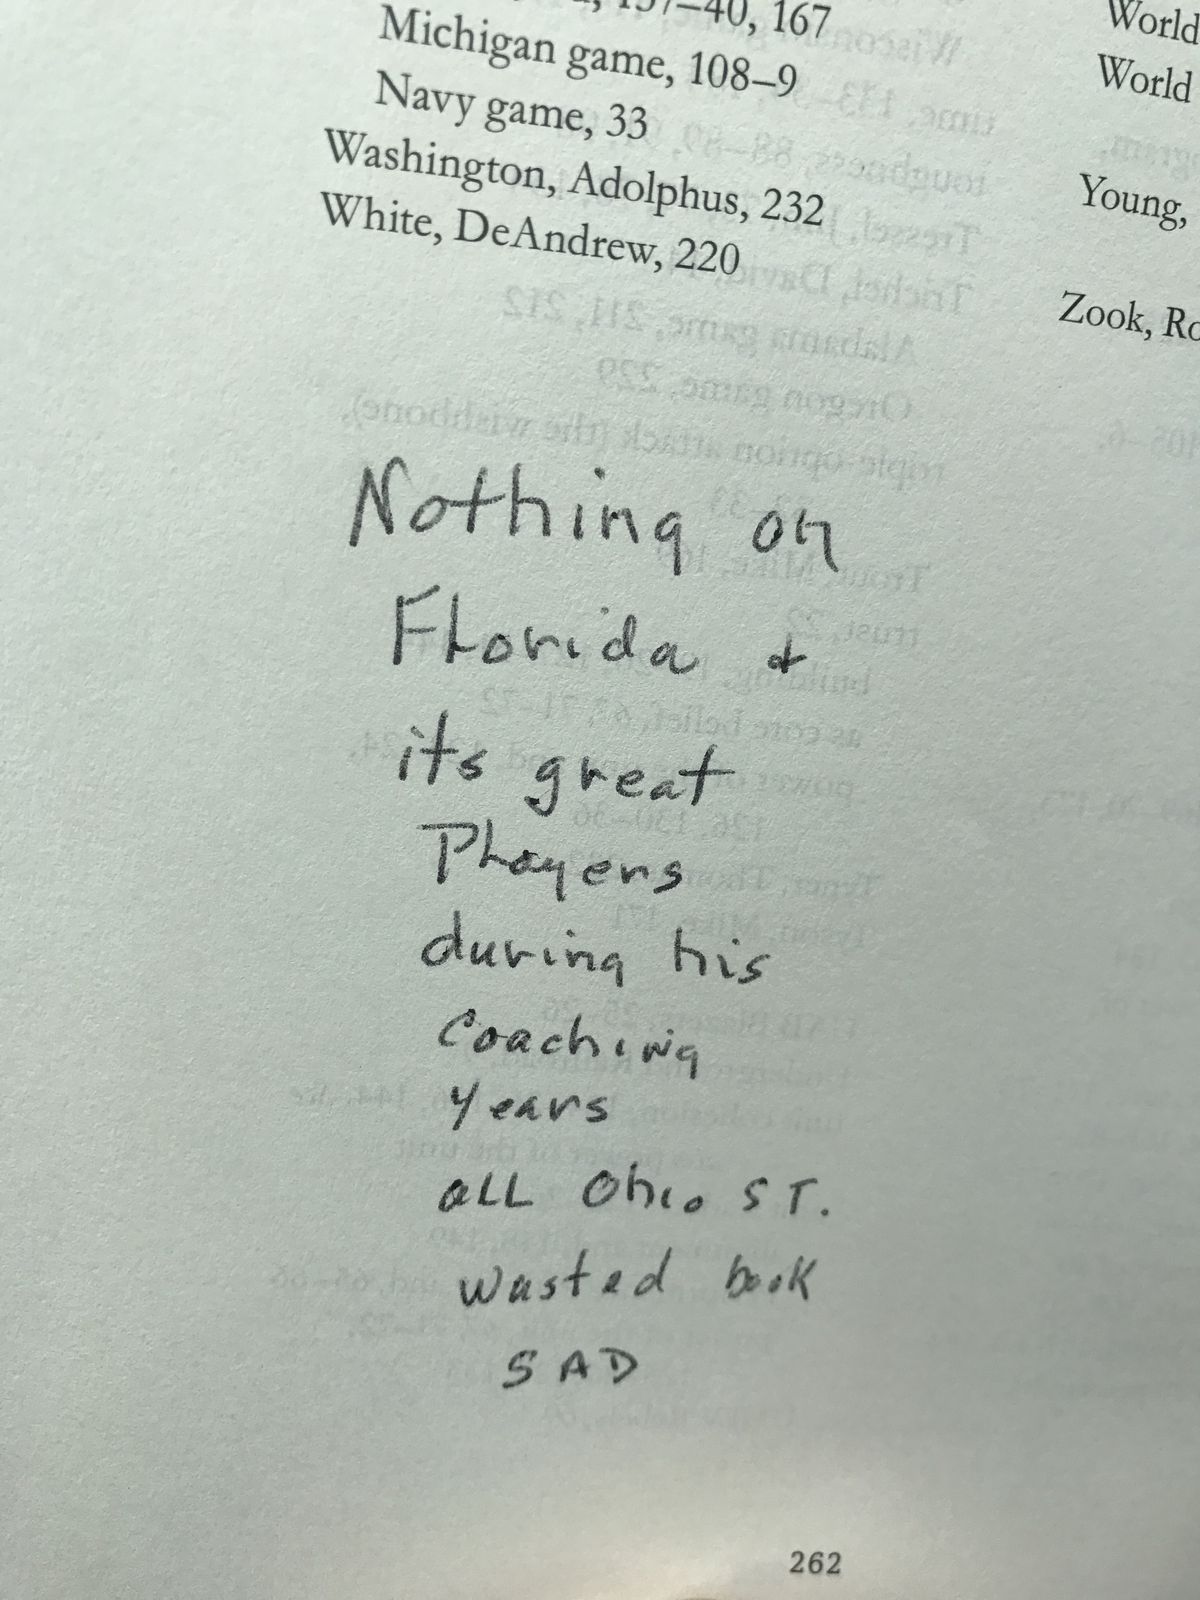 137–40, 167
Michigan game, 108–9
Navy game, 33
Washington, Adolphus, 232
White, DeAndrew, 220
World
World
Young,
Zook, Ro
Nothing on
Florida &
its great
Players
during his
Coaching
years
all Ohio ST.
wasted book
SAD
262